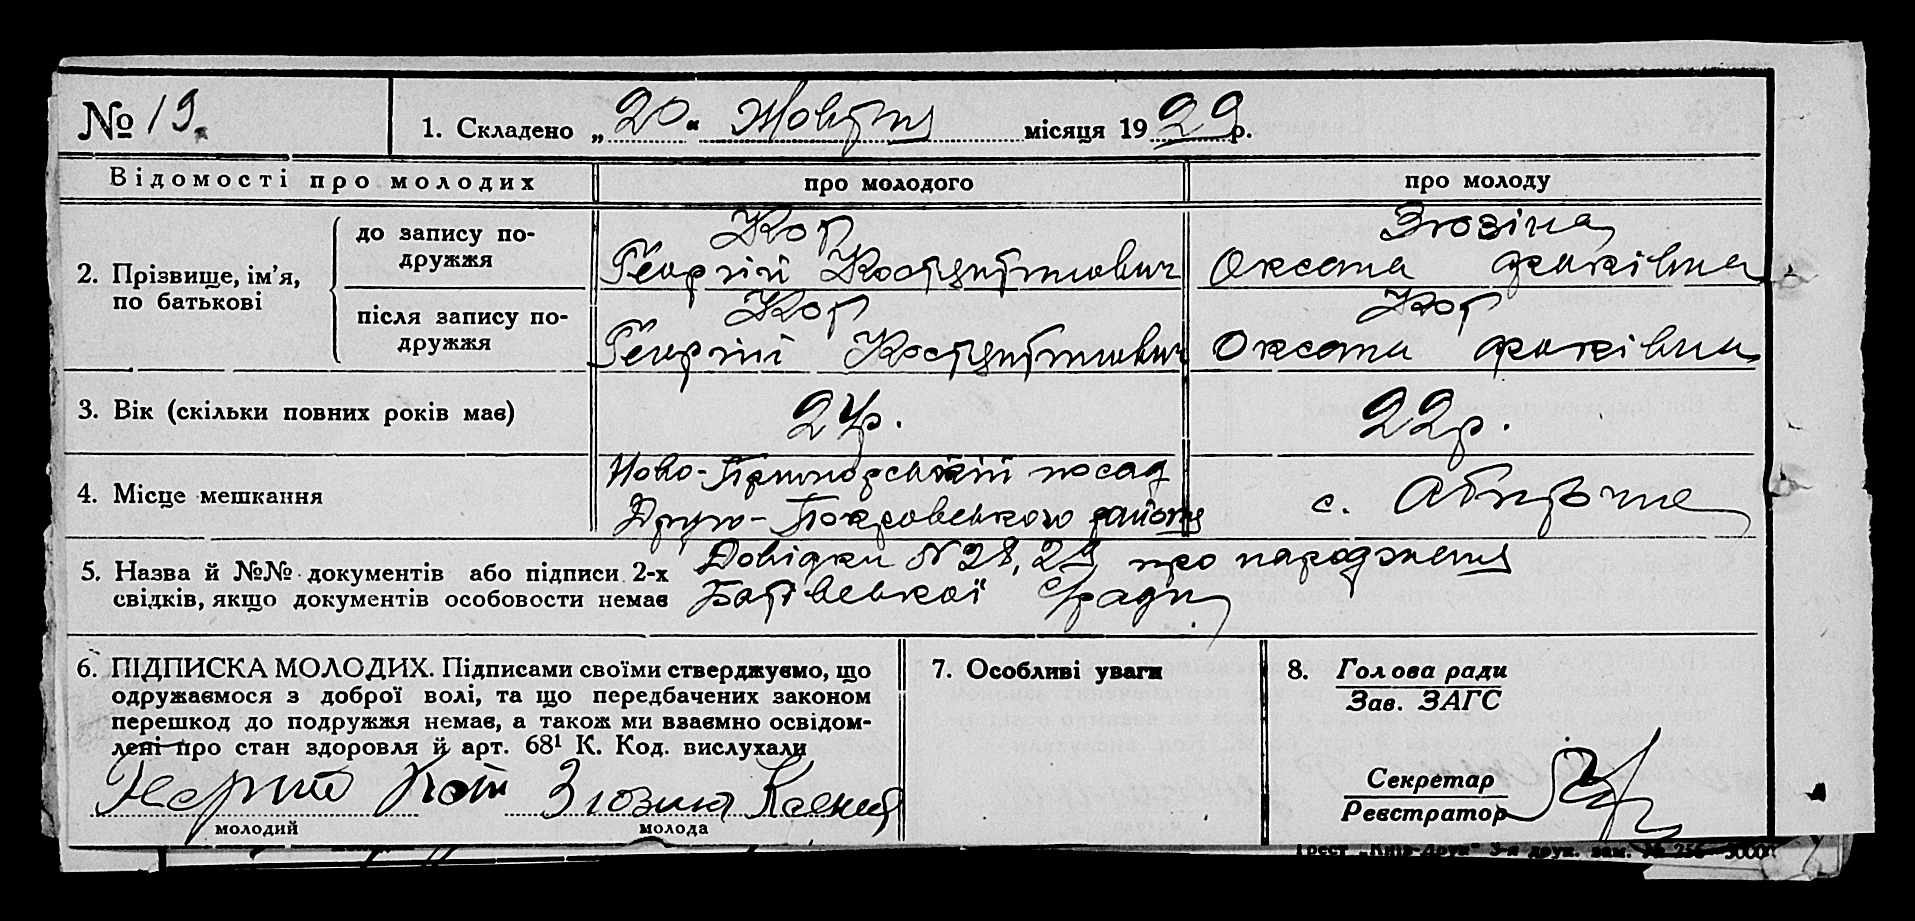 № 19. 1. Складено „20“ Жовтня місяця 1929 р.
Відомості про молодих про молодого про молоду
2. Прізвище, ім'я, по батькові
до запису по-
дружжя
Кот
Георгій Костянтинович
Зюзіна
Оксана Яковівна
після запису по-
дружжя
Кот
Георгій Костянтинович
Кот
Оксана Яковівна
3. Вік (скільки повних років має) 24р. 22р.
4. Місце мешкання
Ново- посад
Друго-Покровського району
с.
5. Назва й №№ документів або підписи 2-х
свідків, якщо документів особовости немає
Довідки N 28, 29 про народження
с/ради
6. ПІДПИСКА МОЛОДИХ. Підписами своїми стверджуємо, що
одружаємося з доброї волі, та що передбачених законом
перешкод до подружжя немає, а також ми взаємно освідом-
лені про стан здоровля й арт. 68¹ К. Код. вислухали
Георгий Кот Зюзина Ксения
молодий молода
7. Особливі уваги
8. Голова ради
Зав. ЗАГС
Секретар
Реєстратор
Трест „Київ-Друк“ 3-я друк. зам. № 256—50000